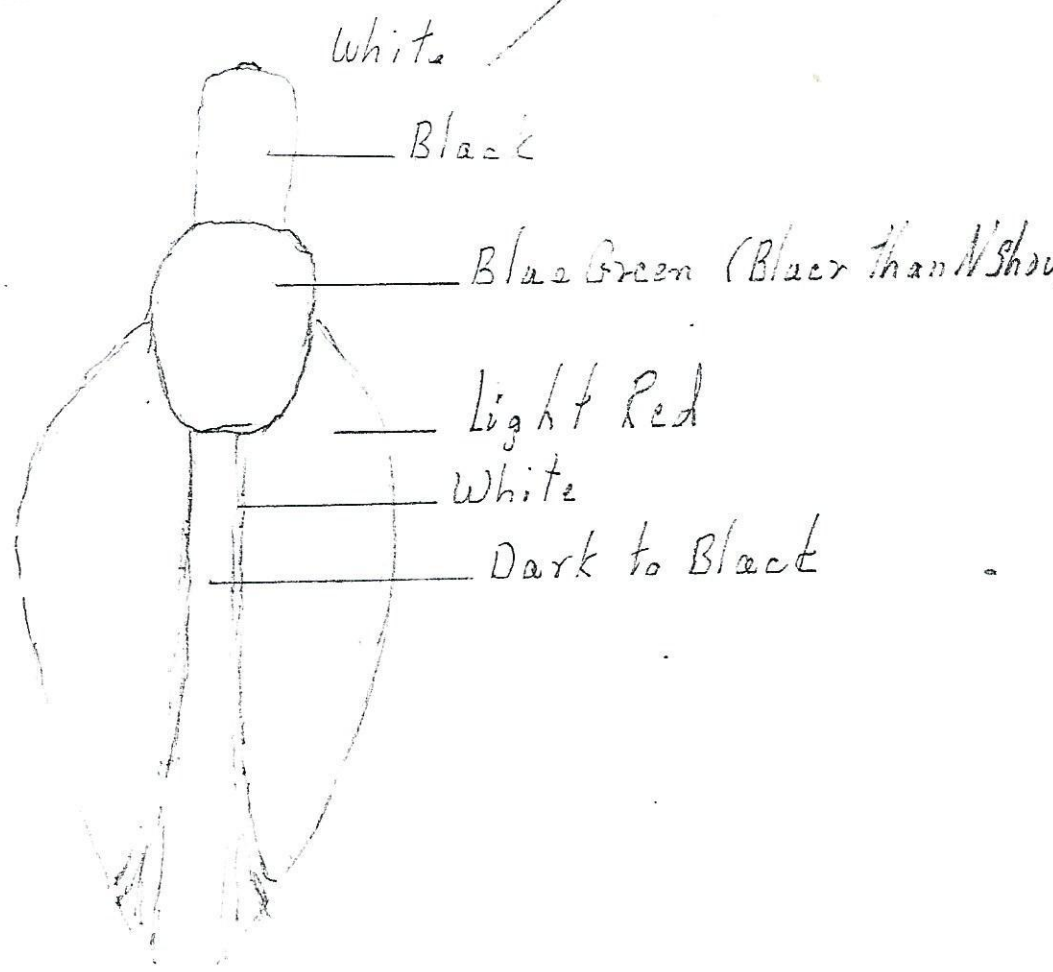 White
Black
Blue Green (Bluer than N Shov
Light Red
White
Dark to Black